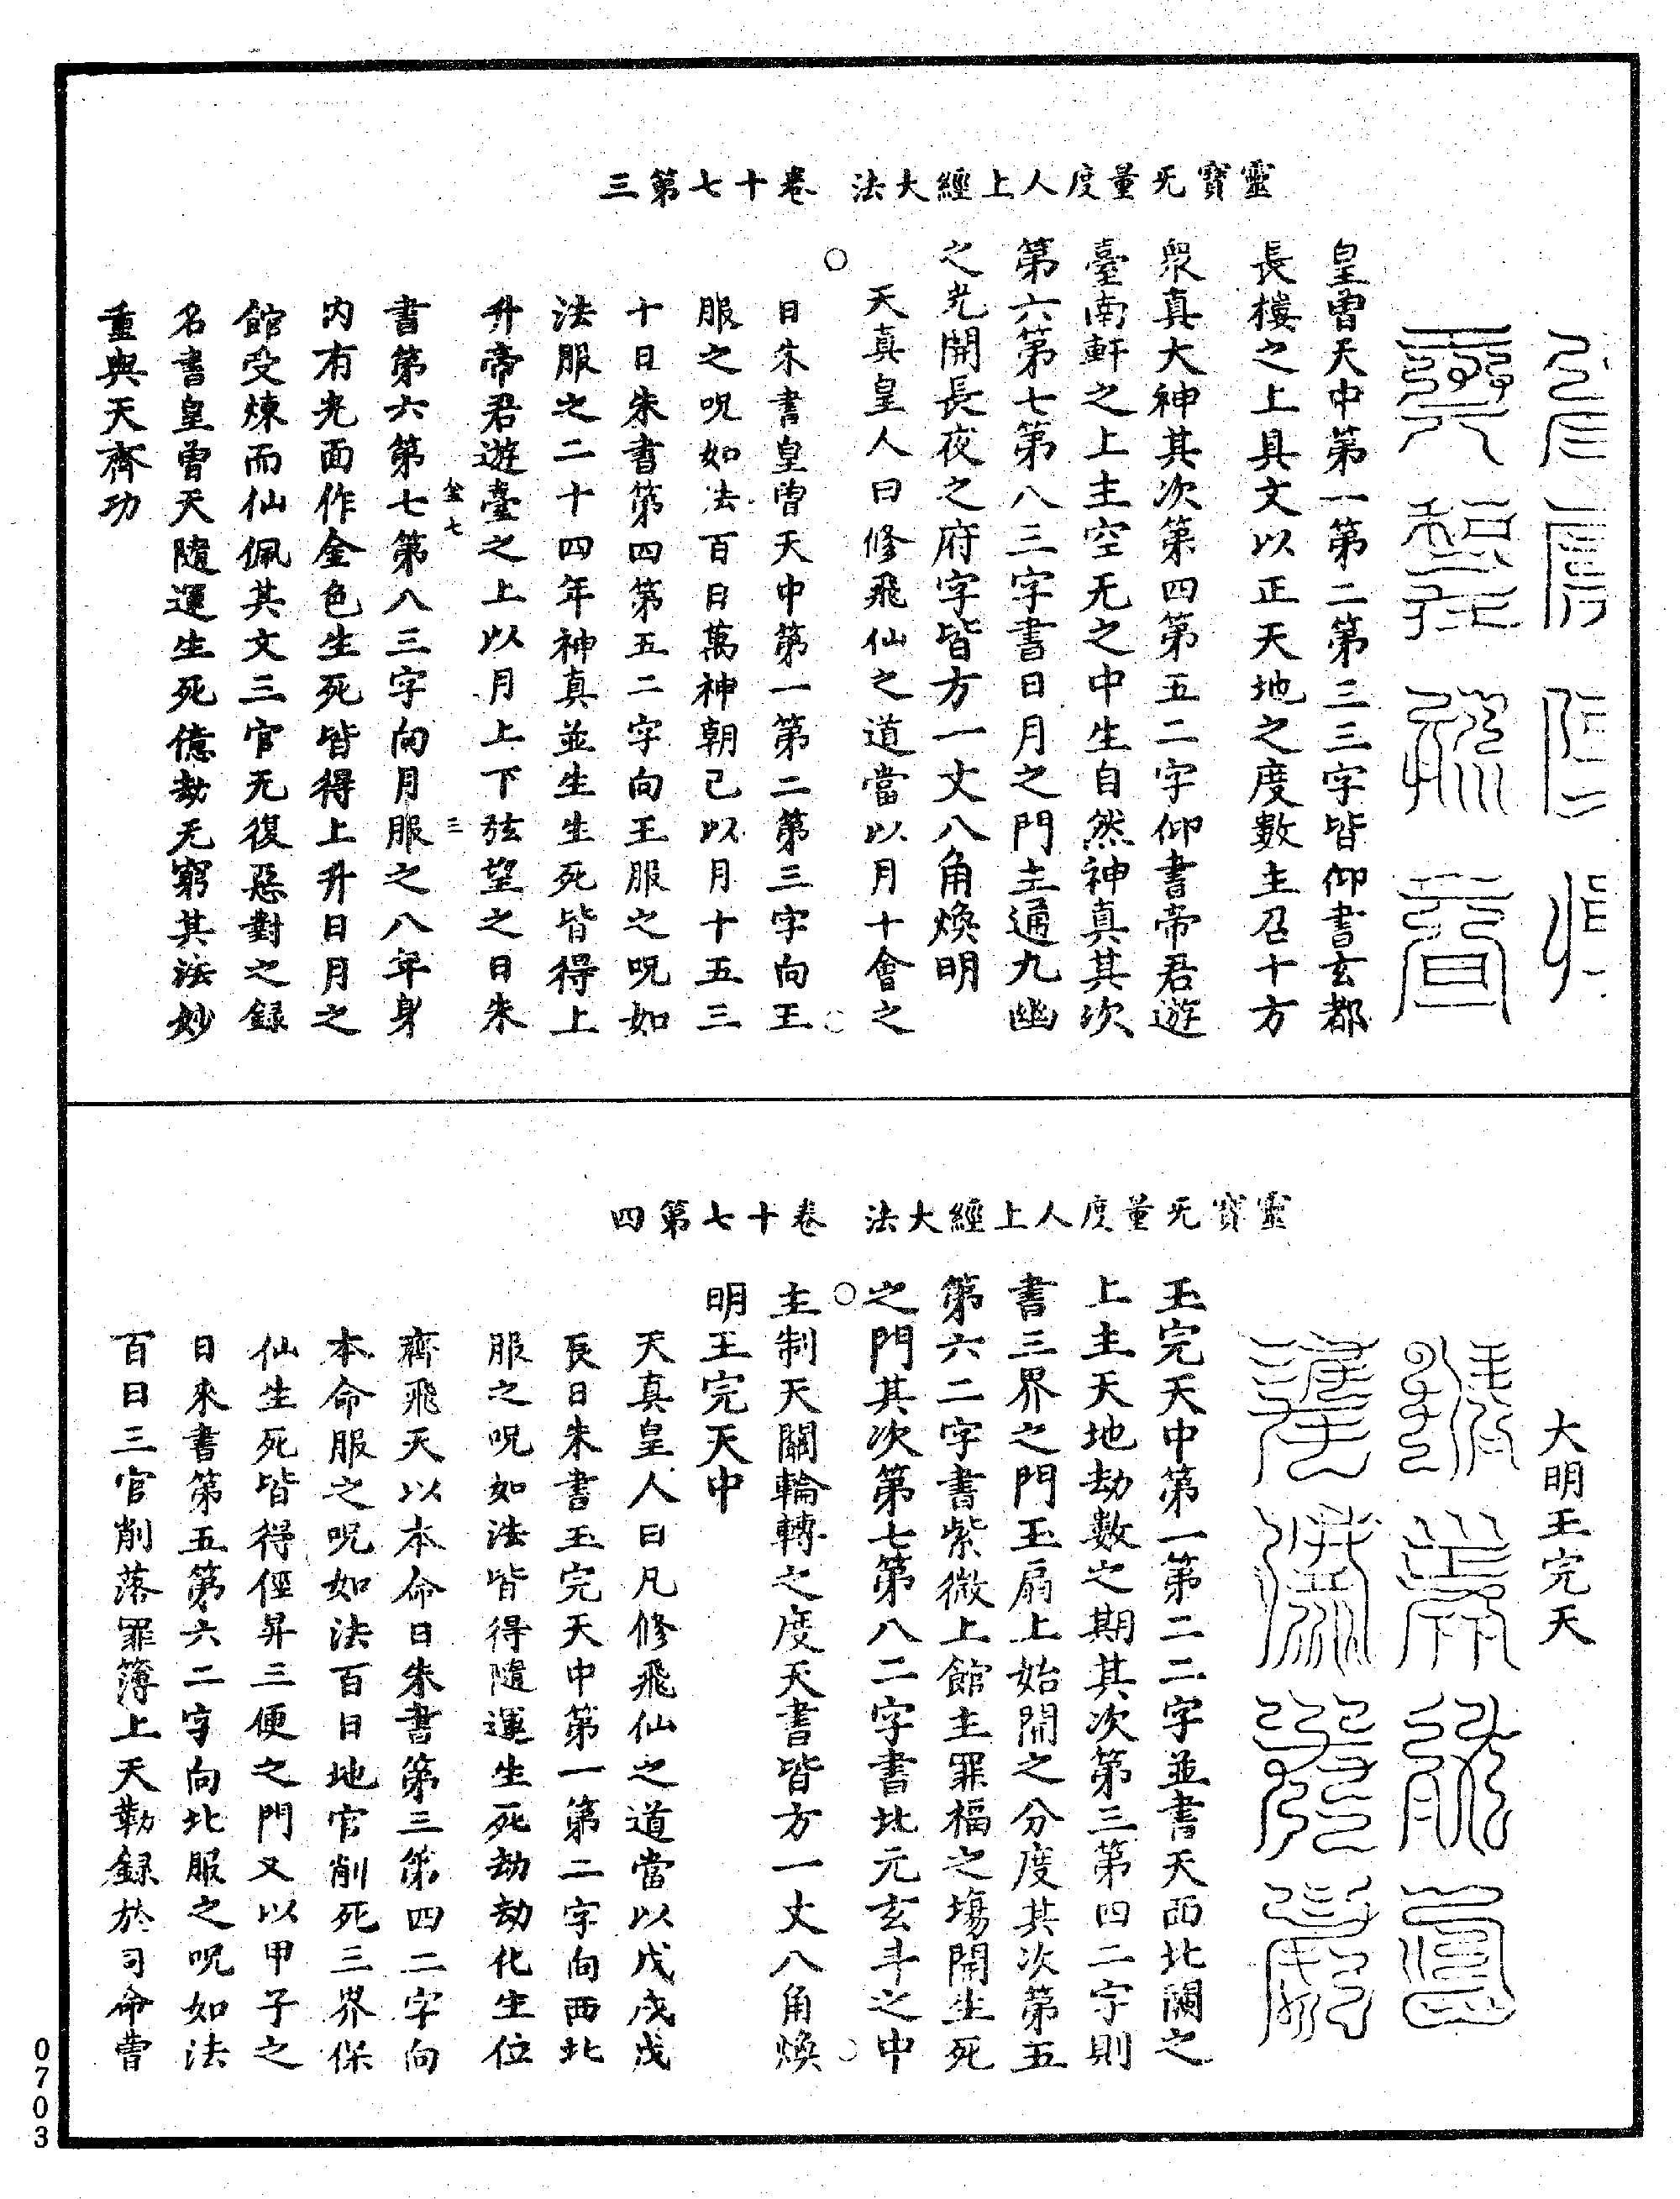 靈寶无量度人上經大法　卷十七第三
皇曾天中第一第二第三三字皆仰書玄都
長樓之上具文以正天地之度數主召十方
衆真大神其次第四第五二字仰書帝君遊
臺南軒之上主空无之中生自然神真其次
第六第七第八三字書日月之門主通九幽
之光開長夜之府字皆方一丈八角煥明
○
天真皇人曰修飛仙之道當以月十會之
日朱書皇曾天中第一第二第三字向王
服之呪如法百日萬神朝己以月十五三
十日朱書第四第五二字向王服之呪如
法服之二十四年神真並生生死皆得上
升帝君遊臺之上以月上下弦望之日朱
金七　三
書第六第七第八三字向月服之八年身
内有光面作金色生死皆得上升日月之
館受煉而仙佩其文三官无復惡對之録
名書皇曾天隨運生死億劫无窮其法妙
重與天齊功
靈寶无量度人上經大法　卷十七第四
大明王完天
玉完天中第一第二二字並書天西北闕之
上主天地劫數之期其次第三第四二字則
書三界之門玉扇上始開之分度其次第五
第六二字書紫微上館主罪福之場開生死
之門其次第七第八二字書北元玄斗之中
○
主制天關輪轉之度天書皆方一丈八角煥
明王完天中
天真皇人曰凡修飛仙之道當以戊戌戊
辰日朱書玉完天中第一第二字向西北
服之呪如法皆得隨運生死劫劫化生位
齊飛天以本命日朱書第三第四二字向
本命服之呪如法百日地官削死三界保
仙生死皆得俓昇三便之門又以甲子之
日來書第五第六二字向北服之呪如法
百日三官削落罪簿上天勒録於司命曹
0703